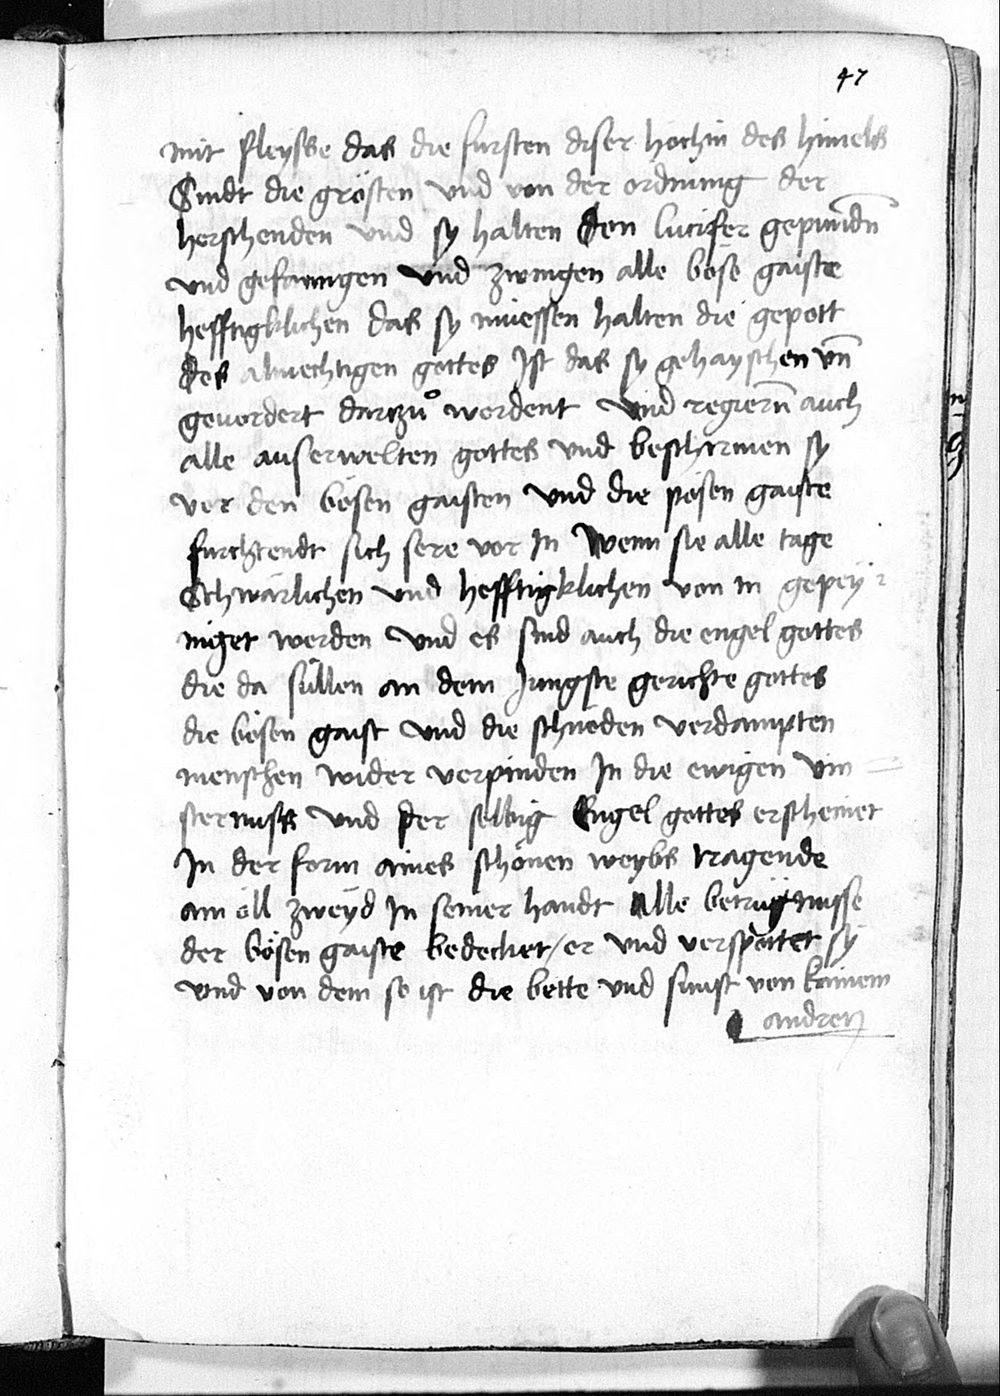 47
mit fleysse das die fursten diser hochin des himels
Sindt die grösten vnd von der ordnung der
herschenden vnd sy halten den lucifer gepundn̄
vnd gefanngen vnd zwingen alle böse gaiste
hefftigklichen das sy müessen halten die gepott
des almechtigen gottes Ist das sy gehayschen vn̄
geuordert darczů werdent vnd regiern̄ auch
alle auserwelten gottes vnd beschirmen sy
vor den bösen gaisten vnd die posen gaiste
furchtendt sich sere vor In Wenn sie alle tage
Schwärlichen vnd hefftigklichen von in gepey
niget werden vnd es sind auch die engel gottes
die da süllen an dem Jungste gerichte gottes
die bösen gaist vnd die schnöden verdampten
menschen wider verpinden In die ewigen vin=
sternuss vnd der selbig Engel gottes erscheinet
In der form aines schönen weybs tragende
ain öll zweyd In seiner handt Alle betrügnusse
der bösen gaiste bedecket/er vnd verspottet sy
vnd von dem so ist die bette vnd sunst von kainem
andren